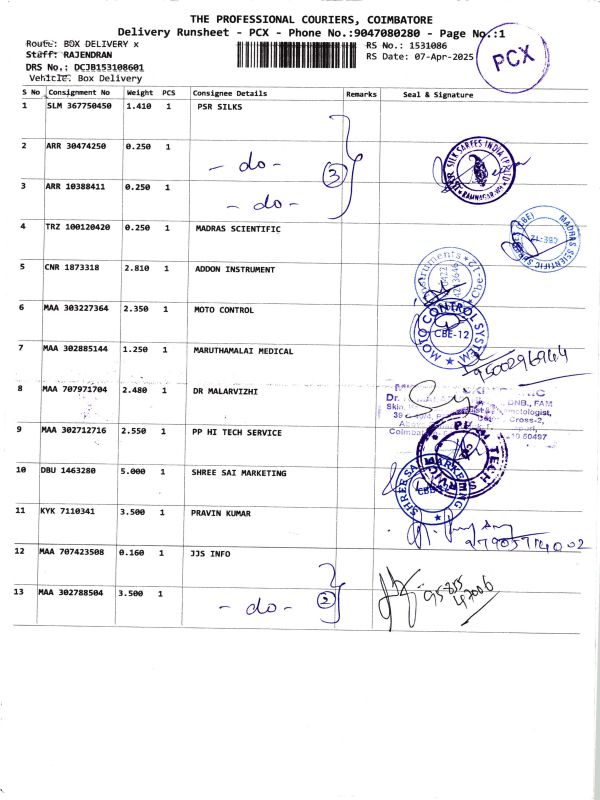 THE PROFESSIONAL COURIERS, COIMBATORE
Delivery Runsheet - PCX - Phone No.:9047080280 - Page No.:1
Route: BOX DELIVERY x
RS No.: 1531086
PCX
Staff: RAJENDRAN
RS Date: 07-Apr-2025
DRS No.: DCJB153108601
Vehicle: Box Delivery
S No Consignment No Weight PCS Consignee Details Remarks Seal & Signature
1 SLM 367750450 1.410 1 PSR SILKS
2 ARR 30474250 0.250 1 - do - 3
3 ARR 10388411 0.250 1 - do -
SILK SAREES INDIA (P) LTD
RAMNAGAR
4 TRZ 100120420 0.250 1 MADRAS SCIENTIFIC
MADRAS SCIENTIFIC
5 CNR 1873318 2.810 1 ADDON INSTRUMENT
Cbe-12
6 MAA 303227364 2.350 1 MOTO CONTROL
MOTO CONTROL SYSTEM
CBE-12
7 MAA 302885144 1.250 1 MARUTHAMALAI MEDICAL
8 MAA 707971704 2.480 1 DR MALARVIZHI
Dr.
DNB., FAM
Skin,
Cross-2,
9 MAA 302712716 2.550 1 PP HI TECH SERVICE
TECH SERVICE
10 DBU 1463280 5.000 1 SHREE SAI MARKETING
SHREE SAI MARKETING
11 KYK 7110341 3.500 1 PRAVIN KUMAR
12 MAA 707423508 0.160 1 JJS INFO
13 MAA 302788504 3.500 1 - do - 2
95855
47006